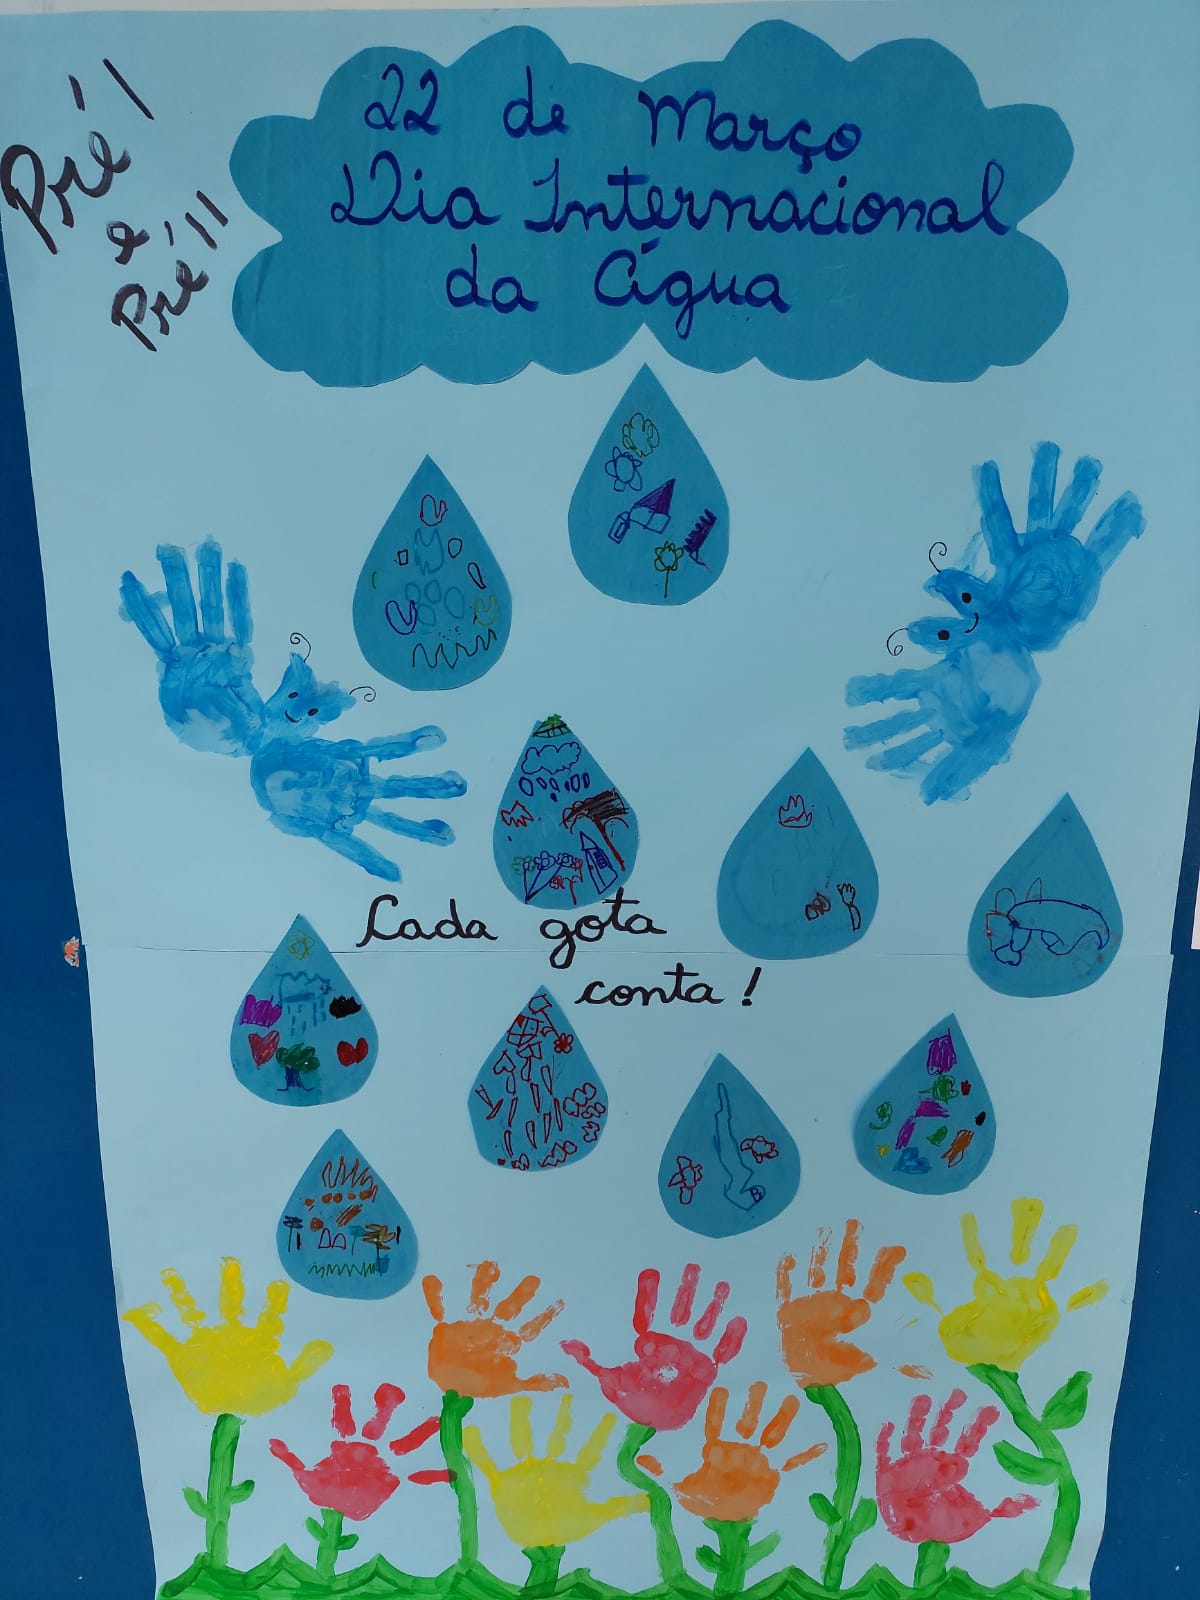 Pré I
e
Pré II
22 de Março
Dia Internacional
da Água
Cada gota
conta!